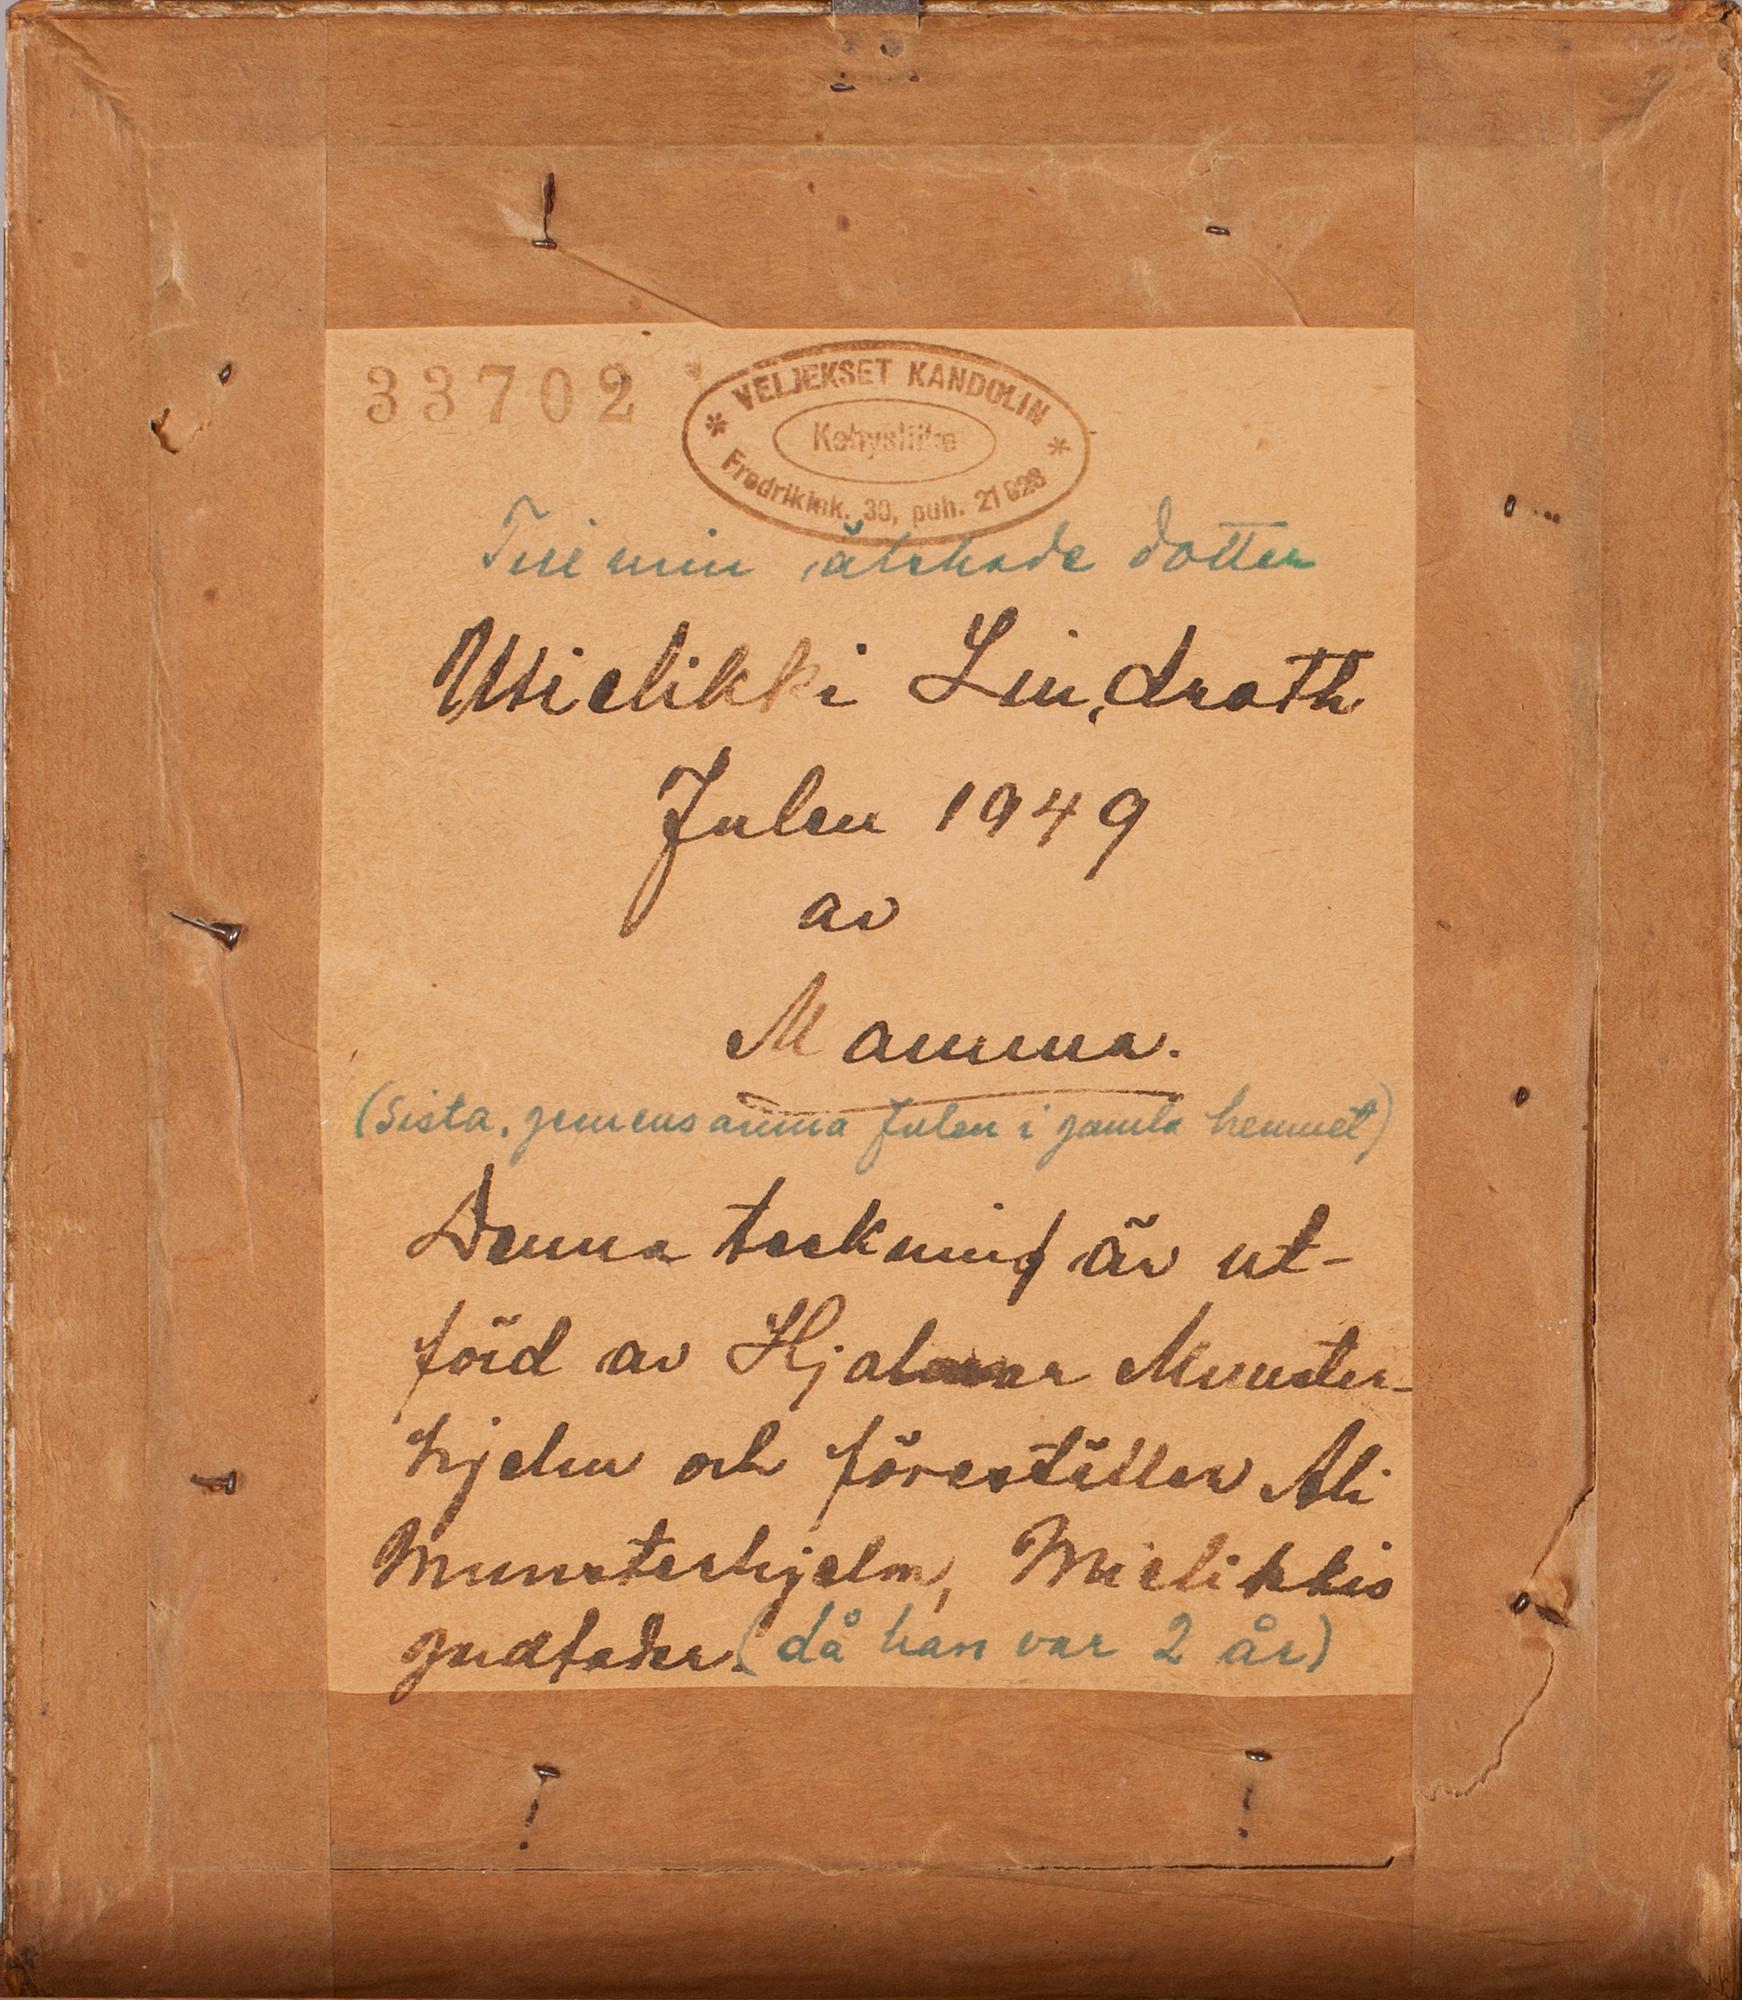 33702
VELJEKSET KANDOLIN
Kehysliike
Fredrikink. 30, puh. 21 828
Till min älskade dotter
Mielikki Lindroth
Julen 1949
av
Mamma.
(Sista, gemensamma Julen i gamla hemmet)
Denna teckning är ut-
förd av Hjalmar Munster-
hjelm och föreställer Ali
Munsterhjelm, Mielikkis
gudfader. (då han var 2 år)